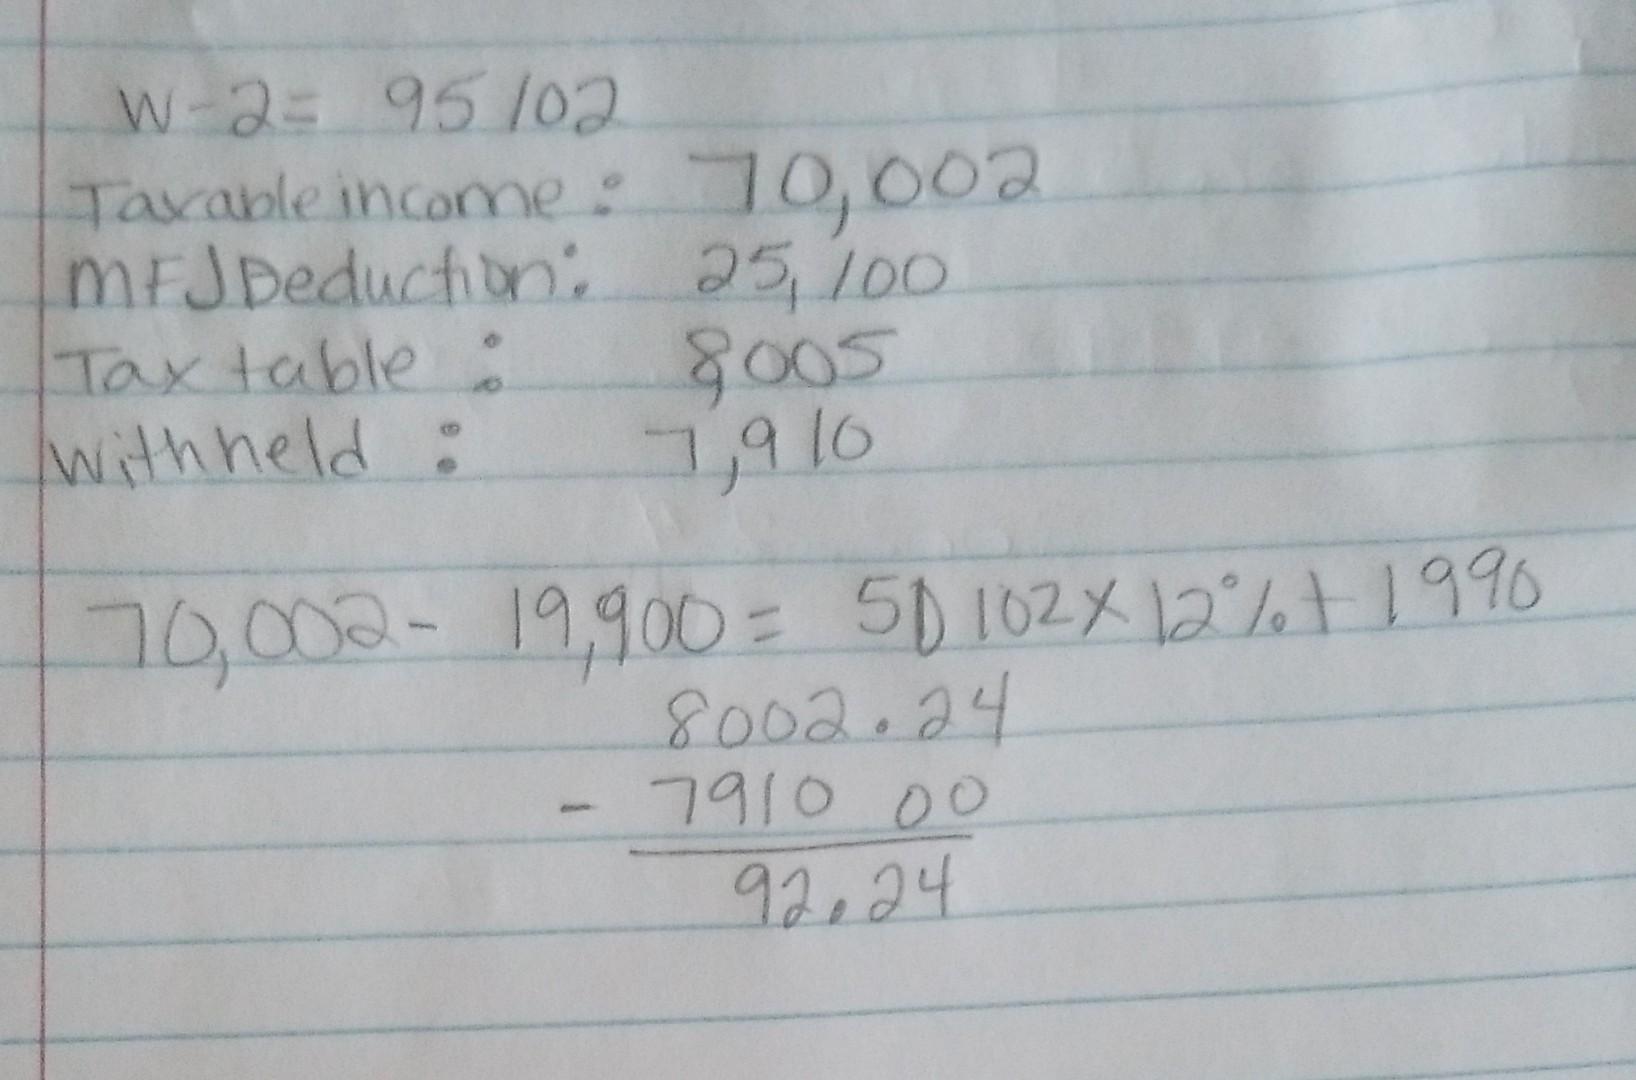 W-2= 95102
Taxable income: 70,002
MFJ Deduction: 25,100
Tax table: 8,005
Withheld: 7,910
70,002 - 19,900 = 50102 x 12% + 1990
8002.24
- 7910 00
92.24